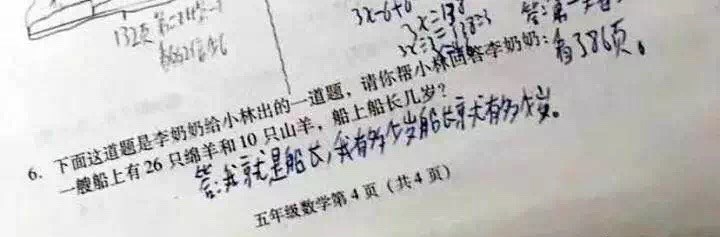 132页
3x-6+6
3x=138
3x÷3=138÷3
有386页。
6. 下面这道题是李奶奶给小林出的一道题，请你帮小林回答李奶奶：
一艘船上有 26 只绵羊和 10 只山羊，船上船长几岁？
答:我就是船长，我有多少岁船长就有多少岁。
五年级数学第 4 页（共 4 页）